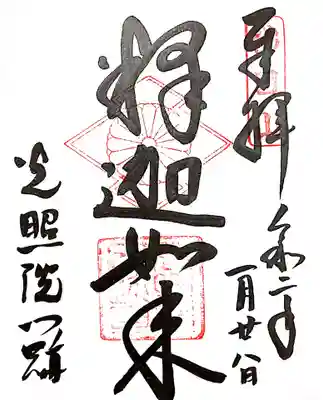 奉拝
令和二年
一月廿八日
釋迦如来
光照院門跡